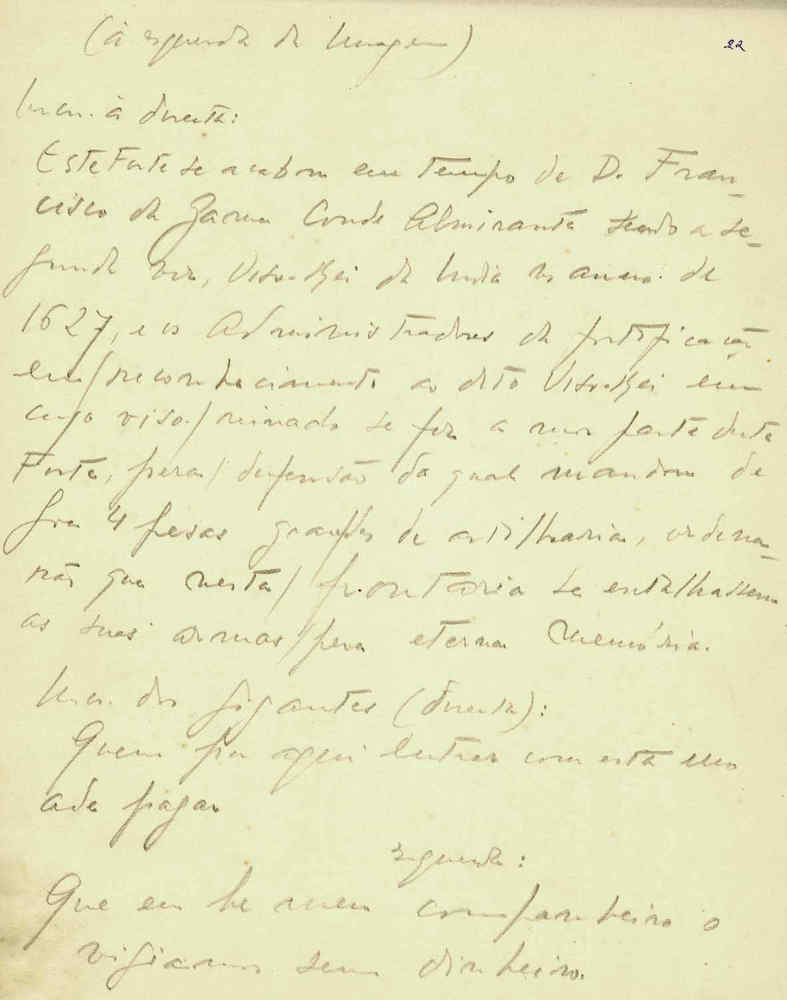 (à esquerda da Imagem)
22
Inscr. à direita:
Este Forte se acabou em tempo de D. Fran-
cisco da Gama Conde Almirante sendo a se-
gunda vez, Viso-Rei da India no anno de
1627, e os Administradores da fortificação
em/reconhecimento ao dito Viso-Rei em
cujo viso/reinado se fez a mor parte deste
Forte, pera/defensão do qual mandou de
Goa 4 pesas grandes de artilharia, ordena-
rão que nesta/frontaria se entalhassem
as suas armas/pera eterna memória.
Inscr. dos gigantes (direita):
Quem por aqui entrar com esta
ade pagar
esquerda:
Que eu he meu companheiro o
vigiamos sem dinheiro.